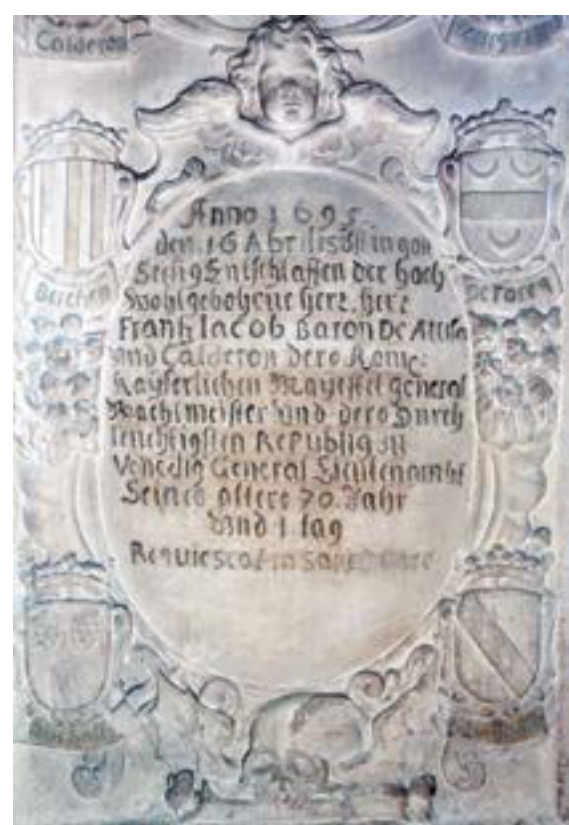 Calderon
Anno 1695
den 16 Abrilis Ist in gott
Seelig Entschlaffen der hoch
Berchen
Wohlgebohene herr, herr
Frantz Iacob Baron De Attifa
und Calderon dero Rom:
Kayserlichen Mayestet general
Wachtmeister und dero Durch
leuchtigsten Republiq zu
Venedig General Lieutenambt
Seines alters 70. Jahr
Vnd 1 tag
Requiescat in Pace